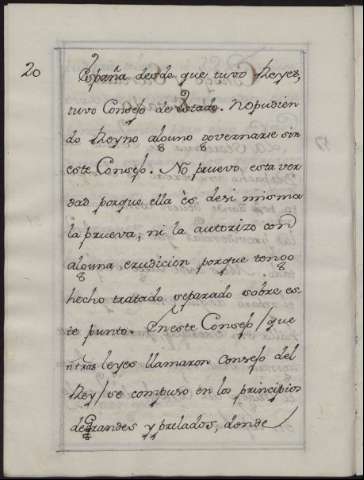 20
España desde que tuvo Reyes,
tuvo Consejo de estado. No pudien
do Reyno alguno governarse sin
este Consejo. No pruevo esta ver
dad porque ella és desi misma
la prueva, ni la autorizo con
alguna erudicion porque tengo
hecho tratado separado sobre es
te punto. En este Consejo / que
ñtras leyes llamaron Consejo del
Rey / se compuso en los principios
de Grandes y prelados, donde